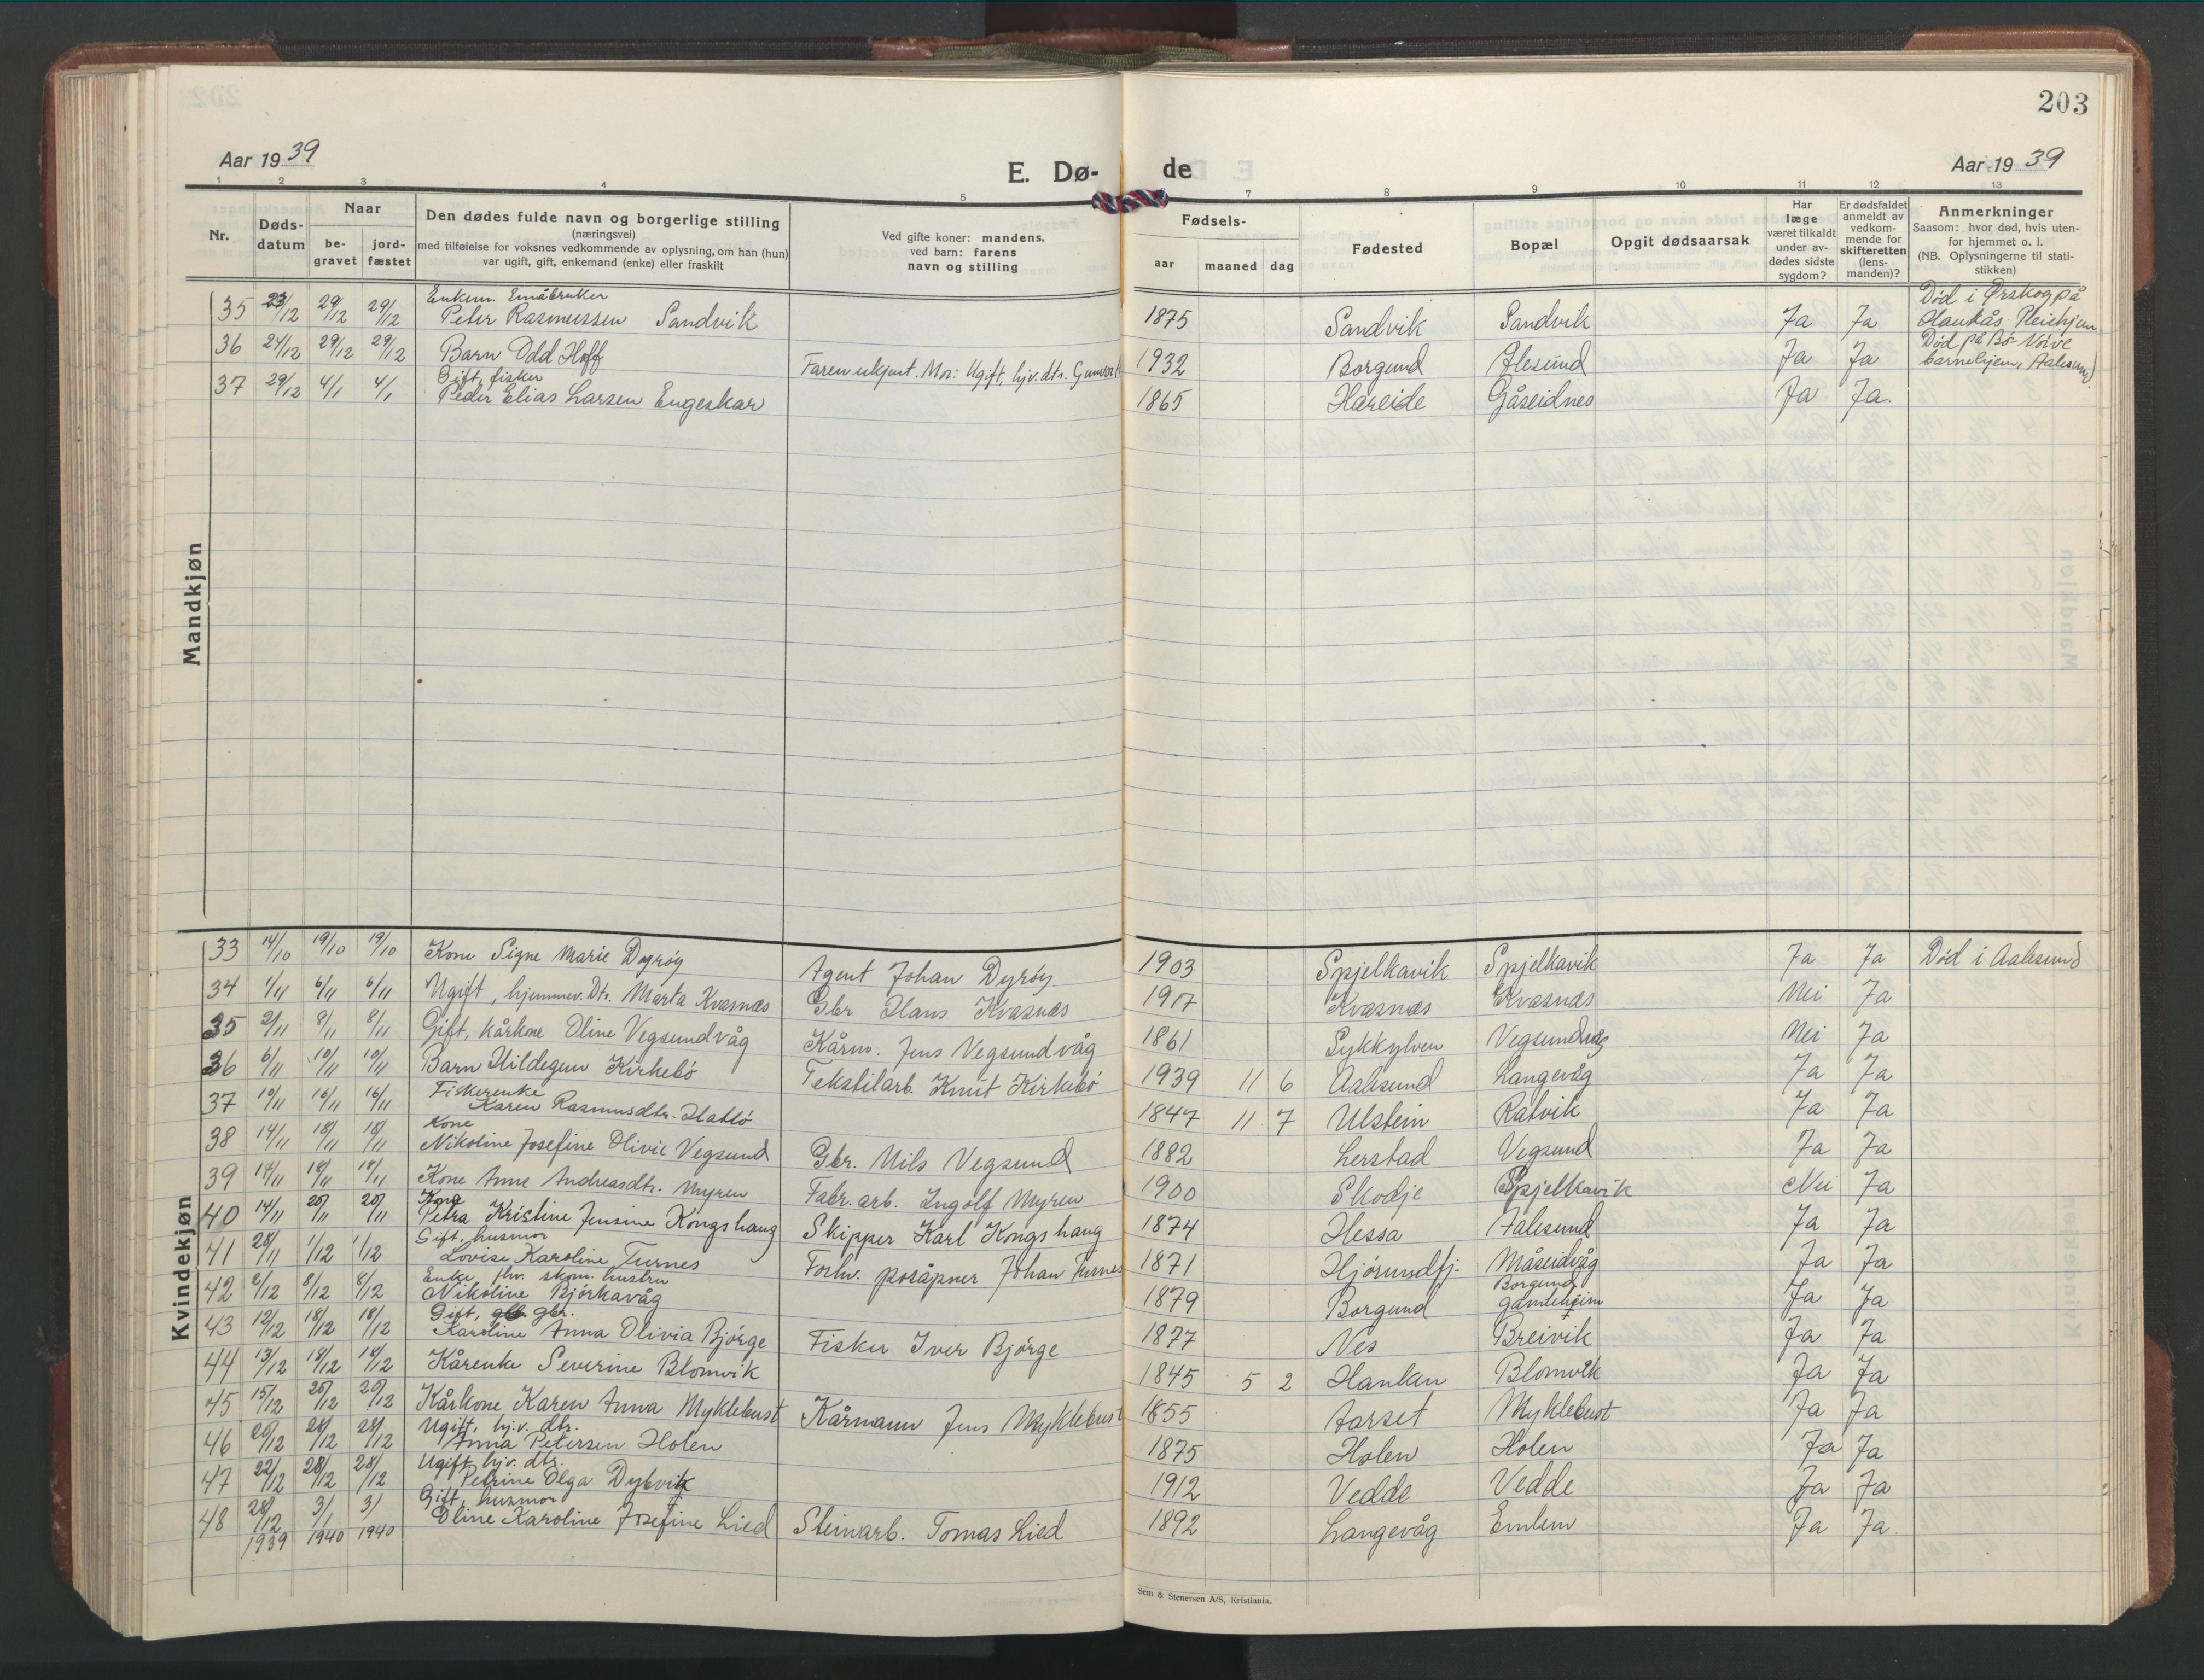 203
Aar 1939
E. Dø- de
Aar 1939
1 2 3 4 5 7 8 9 10 11 12 13
Nr.
Døds-
datum
Naar
be-
gravet
jord-
fæstet
Den dødes fulde navn og borgerlige stilling
(næringsvei)
med tilføielse for voksnes vedkommende av oplysning, om han (hun)
var ugift, gift, enkemand (enke) eller fraskilt
Ved gifte koner: mandens.
ved barn: farens
navn og stilling
Fødsels-
aar maaned dag
Fødested
Bopæl
Opgit dødsaarsak
Har
læge
været tilkaldt
under av-
dødes sidste
sygdom?
Er dødsfaldet
anmeldt av
vedkom-
mende for
skifteretten
(lens-
manden)?
Anmerkninger
Saasom: hvor død, hvis uten-
for hjemmet o. l.
(NB. Oplysningerne til stati-
stikken)
Mandkjøn
Enkem. Småbruker
35 23/12 29/12 29/12 Peter Rasmussen Sandvik 1875 Sandvik Sandvik Ja Ja Død i Ørskog på
Pleiehjem
36 24/12 29/12 29/12 Barn Odd Hoff Faren ukjent. Mor: Ugift, hjv. dtr. 1932 Borgund Ålesund Ja Ja Død på Bø
barnehjem, Aalesund
Gift, fisker
37 29/12 4/1 4/1 Peder Elias Larsen Engeskar 1865 Hareide Gåseidnes Ja Ja.
Kvindekjøn
33 14/10 19/10 19/10 Kone Signe Marie Dyrøy Agent Johan Dyrøy 1903 Spjelkavik Spjelkavik Ja Ja Død i Aalesund
34 1/11 6/11 6/11 Ugift, hjemmev. Dtr. Marta Kvasnæs Gbr Hans Kvasnæs 1917 Kvasnæs Kvasnæs Nei Ja
35 2/11 8/11 8/11 Gift, kårkone Oline Vegsundvåg Kårm. Jens Vegsundvåg 1861 Sykkylven Vegsundvåg Nei Ja
36 6/11 10/11 10/11 Barn Hildegun Kirkebø Tekstilarb. Knut Kirkebø 1939 11 6 Aalesund Langevåg Ja Ja
Fiskerenke
37 10/11 16/11 16/11 Karen Rasmusdtr. Hatlø 1847 11 7 Ulstein Ratvik Ja Ja
Kone
38 14/11 18/11 18/11 Nikoline Josefine Olivie Vegsund Gbr. Nils Vegsund 1882 Lerstad Vegsund Ja Ja
39 14/11 18/11 18/11 Kone Anne Andreasdtr. Myren Fabr. arb. Ingolf Myren 1900 Skodje Spjelkavik Nei Ja
Kone
40 14/11 20/11 20/11 Petra Kristine Jensine Kongshaug Skipper Karl Kongshaug 1874 Hessa Aalesund Ja Ja
Gift, husmor
41 28/11 1/12 1/12 Lovise Karoline Furnes Forhv. poståpner Johan Furnes 1871 Hjørundfj. Måseidvåg Ja Ja
Enke, fhv. skom. hustru
42 2/12 8/12 8/12 Nikoline Bjørkavåg 1879 Borgund Borgund gamleheim Ja Ja
Gift, gbr.
43 12/12 18/12 18/12 Karoline Anna Olivia Bjørge Fisker Iver Bjørge 1877 Nes Breivik Ja Ja
44 13/12 18/12 18/12 Kårenke Severine Blomvik 1845 5 2 Hanken Blomvik Ja Ja
45 15/12 20/12 20/12 Kårkone Karen Anna Myklebust Kårmann Jens Myklebust 1855 Aarset Myklebust Ja Ja
Ugift, hj.v. dtr.
46 20/12 28/12 28/12 Anna Petersen Holen 1875 Holen Holen Ja Ja
Ugift hjv. dtr.
47 22/12 28/12 28/12 Petrine Olga Dybvik 1912 Vedde Vedde Ja Ja
Gift, husmor
48 28/12 1939 3/1 1940 3/1 1940 Oline Karoline Josefine Lied Steinarb. Tomas Lied 1892 Langevåg Emlem Ja Ja.
Sem & Stenersen A/S, Kristiania.